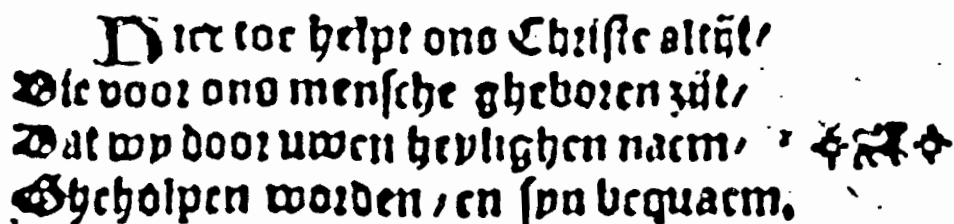 Hier toe helpt ons Christe altijt/
Die voor ons mensche gheboren zijt/
Dat wy door uwen heylighen naem/
Gheholpen worden/en syn bequaem.